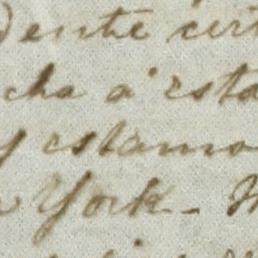 dente cir
cha a esta
y estamo
York -